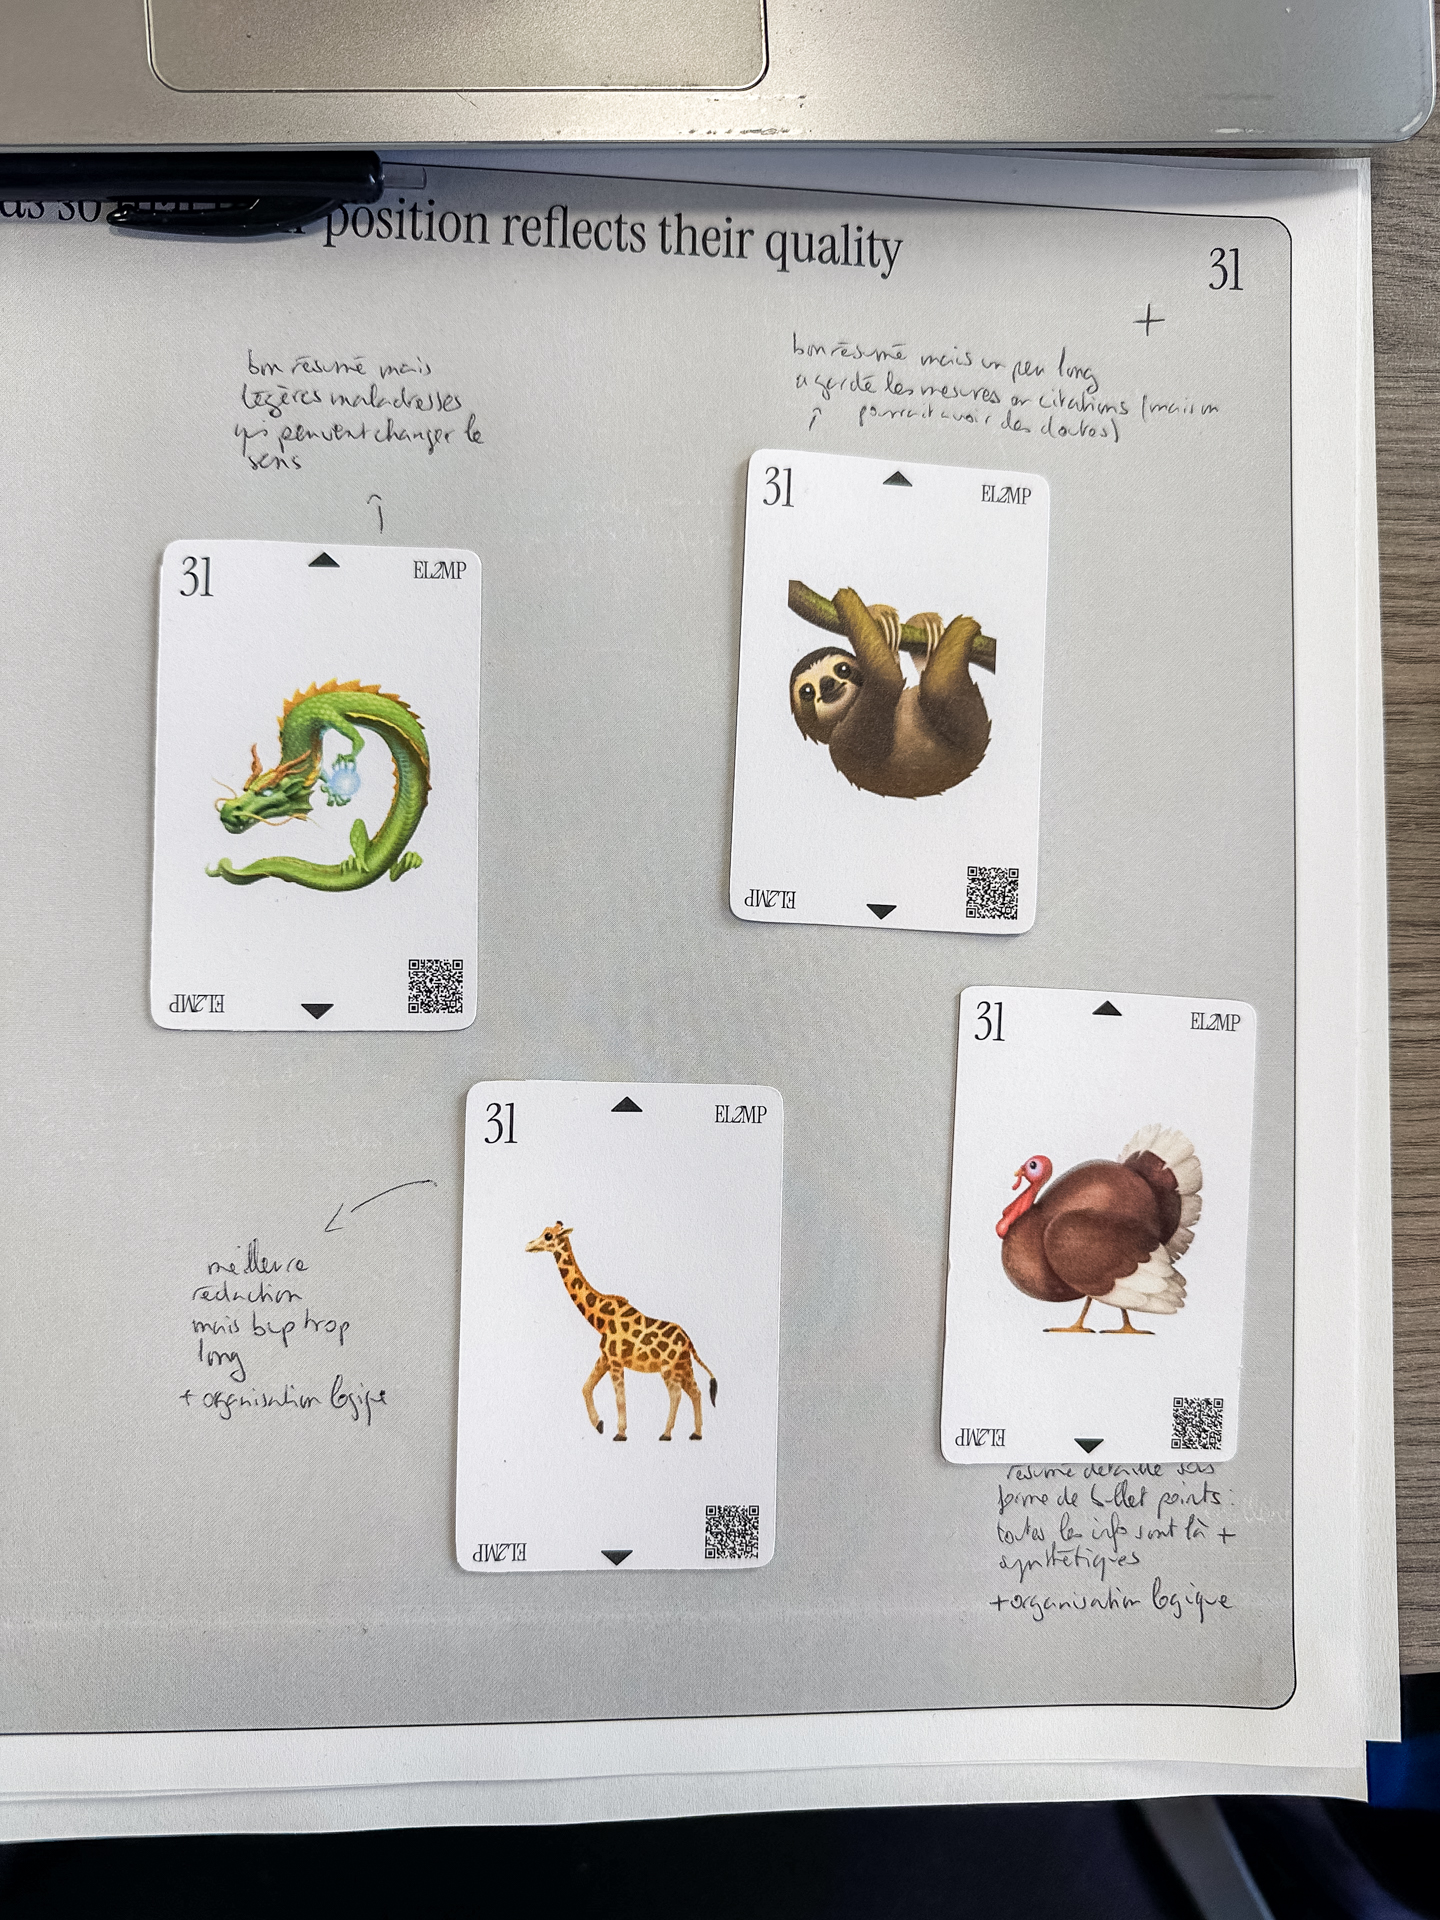 position reflects their quality
31
+
bon résumé mais
légères maladresses
qui peuvent changer le
sens
bon résumé mais un peu long
a gardé les mesures en citations (mais on
pourrait avoir des doutes)
31
EL2MP
EL2MP
31
EL2MP
EL2MP
31
EL2MP
EL2MP
31
EL2MP
EL2MP
meilleure
rédaction
mais bcp trop
long
+ organisation logique
résumé détaillé sous
forme de bullet points :
toutes les infos sont là +
synthétiques
+ organisation logique